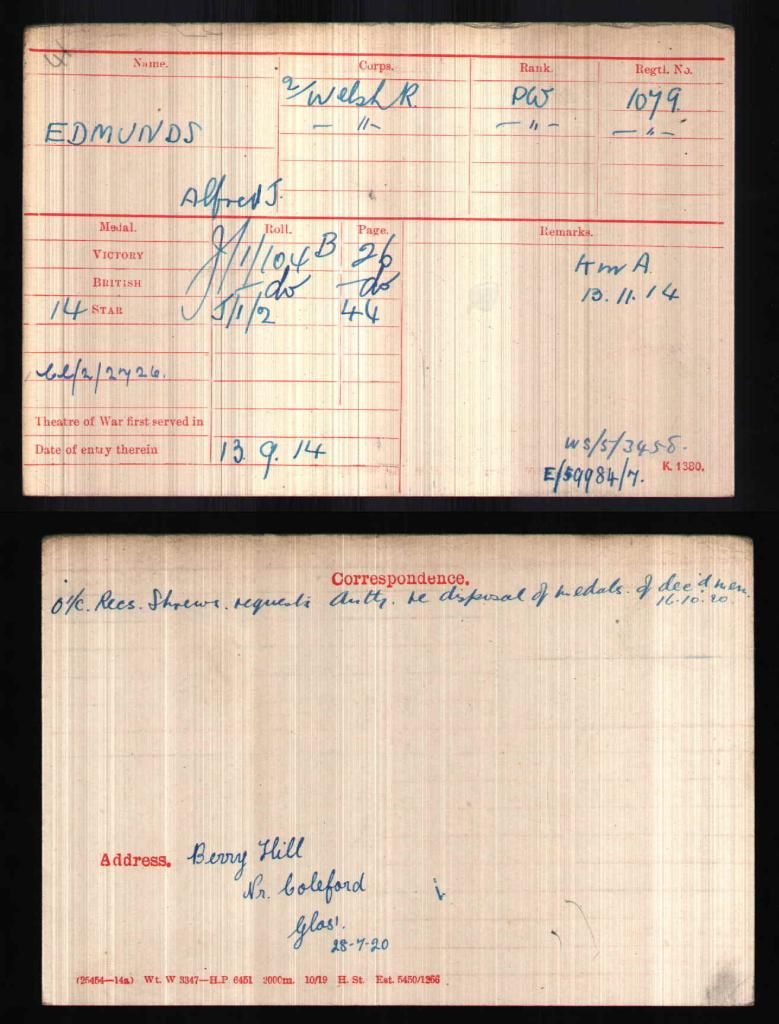 Name. Corps. Rank. Regtl. No.
2/Welsh R. PW 1079.
— " — — " — — " —
EDMUNDS
Alfred J.
Medal. Roll. Page. Remarks.
VICTORY J/1/104 B 26 K in A.
BRITISH — do — do 13.11.14
14 STAR J/1/2 44
CL/2/2726.
Theatre of War first served in
Date of entry therein 13.9.14
WS/5/3458.
E/59984/7. K. 1380.
Correspondence.
O i/c. Recs. Shrews. requests Auth. re disposal of medals. of dec'd men.
16.10.20.
Address. Berry Hill
Nr. Coleford
Glos.
28-7-20
(25454—14a) Wt. W 3347—H.P. 6451 2000m. 10/19 H. St. Est. 5450/1256